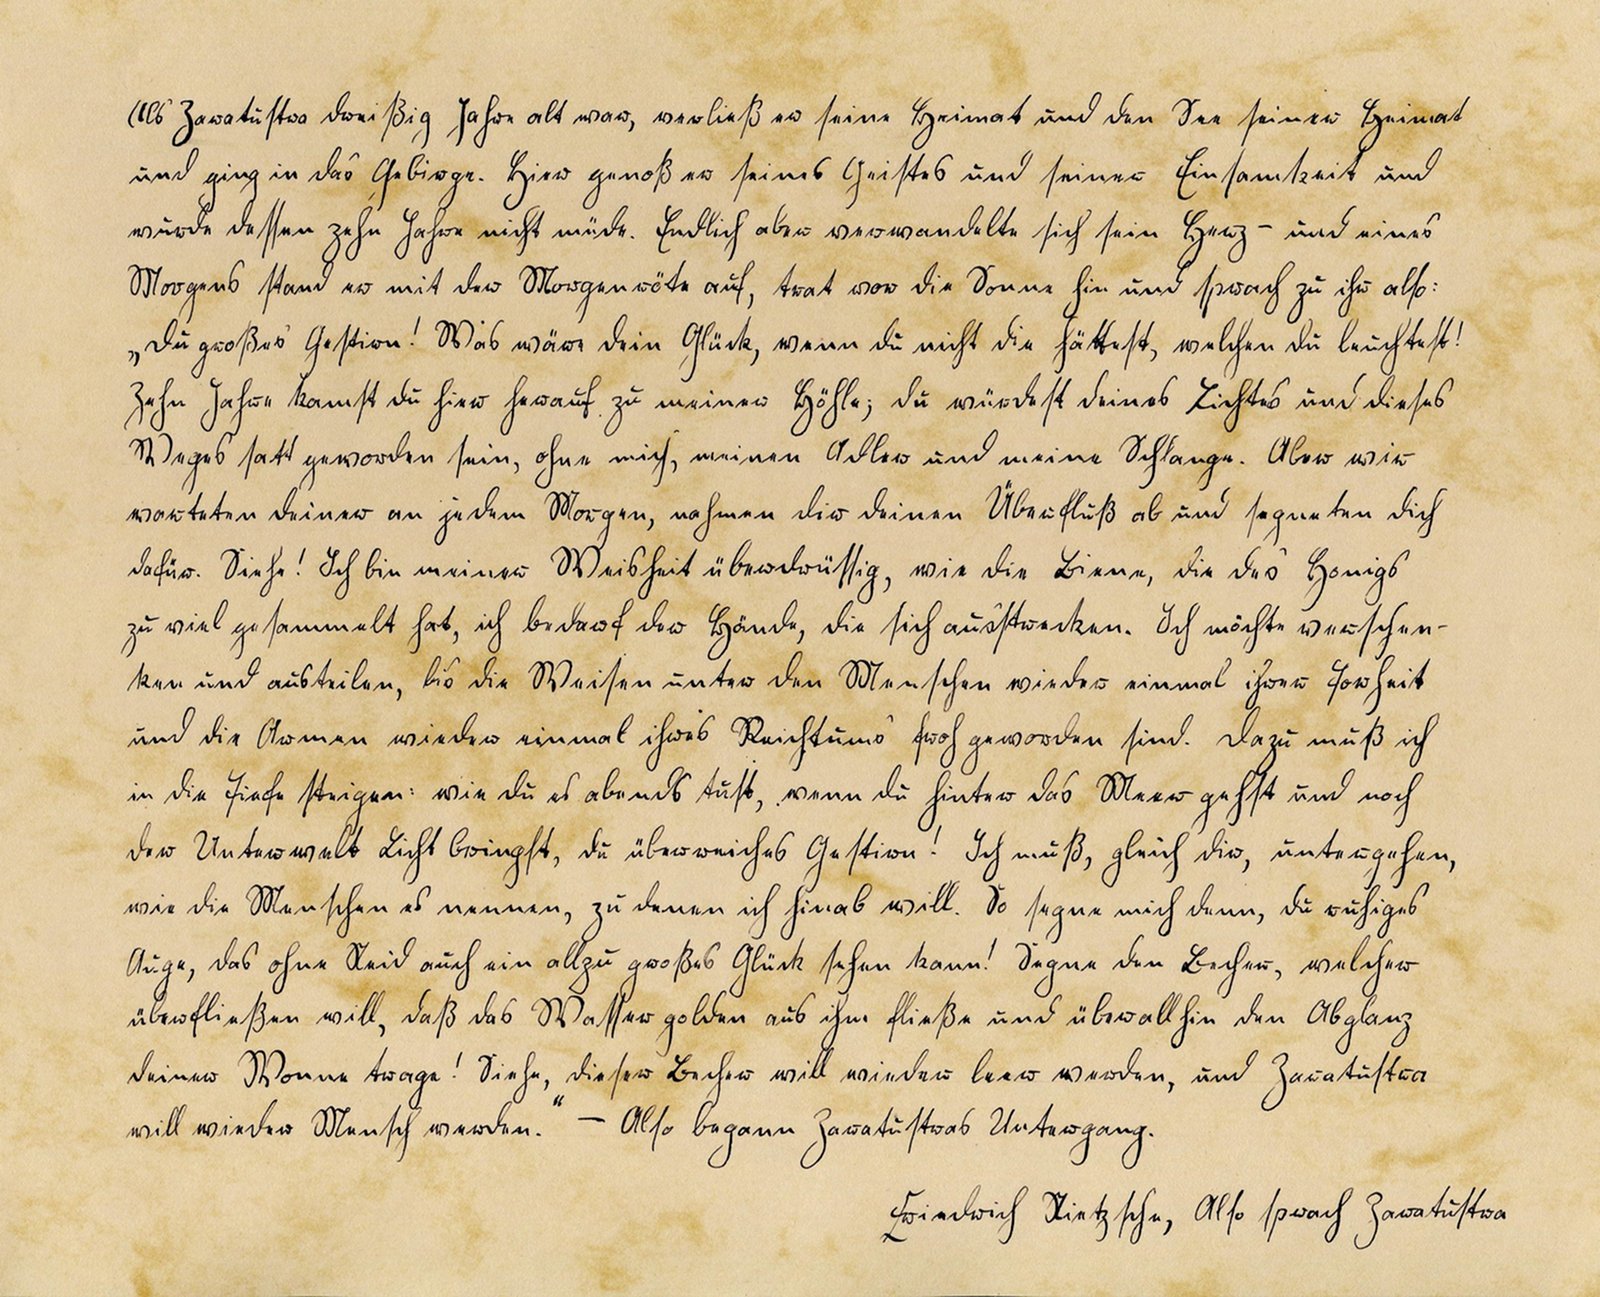 Als Zaratustra dreißig Jahre alt war, verließ er seine Heimat und den See seiner Heimat
und ging in das Gebirge. Hier genoß er seines Geistes und seiner Einsamkeit und
wurde dessen zehn Jahre nicht müde. Endlich aber verwandelte sich sein Herz – und eines
Morgens stand er mit der Morgenröte auf, trat vor die Sonne hin und sprach zu ihr also:
„Du großes Gestirn! Was wäre dein Glück, wenn du nicht die hättest, welchen du leuchtest!
Zehn Jahre kamst du hier herauf zu meiner Höhle; du würdest deines Lichtes und dieses
Weges satt geworden sein, ohne mich, meinen Adler und meine Schlange. Aber wir
warteten deiner an jedem Morgen, nahmen dir deinen Überfluß ab und segneten dich
dafür. Siehe! Ich bin meiner Weisheit überdrüssig, wie die Biene, die des Honigs
zu viel gesammelt hat, ich bedarf der Hände, die sich ausstrecken. Ich möchte verschen-
ken und austeilen, bis die Weisen unter den Menschen wieder einmal ihrer Torheit
und die Armen wieder einmal ihres Reichtums froh geworden sind. Dazu muß ich
in die Tiefe steigen: wie du es abends tust, wenn du hinter das Meer gehst und noch
der Unterwelt Licht bringst, du überreiches Gestirn! Ich muß, gleich dir, untergehen,
wie die Menschen es nennen, zu denen ich hinab will. So segne mich denn, du ruhiges
Auge, das ohne Neid auch ein allzu großes Glück sehen kann! Segne den Becher, welcher
überfließen will, daß das Wasser golden aus ihm fließe und überallhin den Abglanz
deiner Wonne trage! Siehe, dieser Becher will wieder leer werden, und Zaratustra
will wieder Mensch werden.“ – Also begann Zaratustras Untergang.
Friedrich Nietzsche, Also sprach Zaratustra